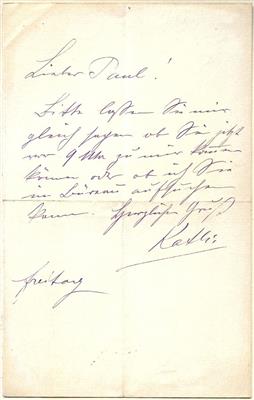 Lieber Paul!
Bitte lassen Sie mir
gleich sagen ob Sie jetzt
vor 9 Uhr zu mir kommen
können oder ob ich Sie
im Bureau aufsuchen
kann. Herzlichen Gruß
Kathi
Freitag